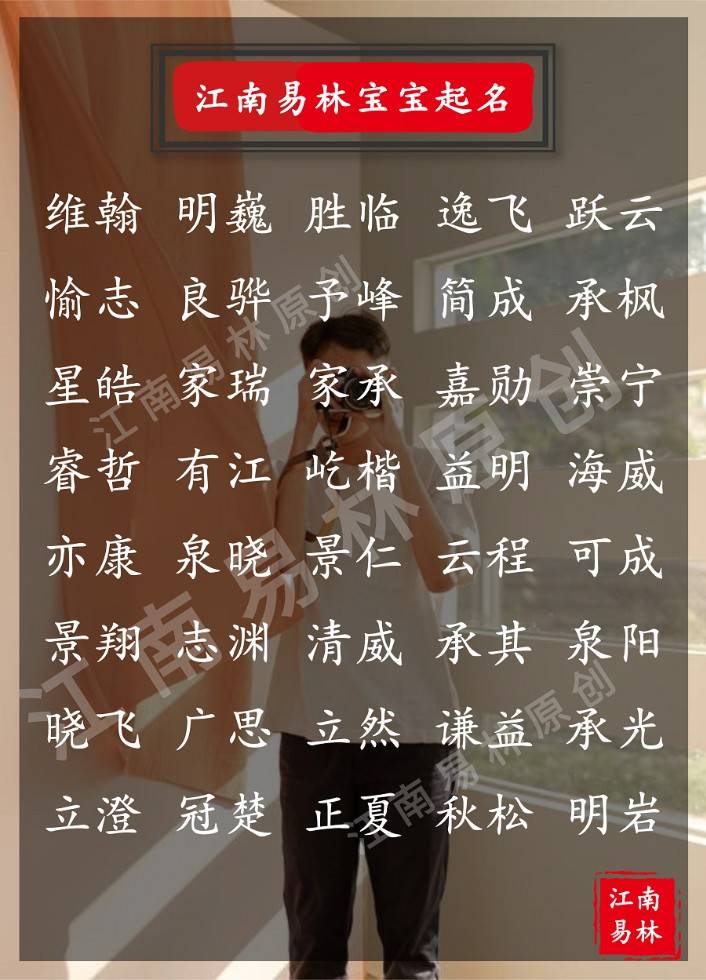 江南易林宝宝起名
维翰 明巍 胜临 逸飞 跃云
愉志 良骅 予峰 简成 承枫
星皓 家瑞 家承 嘉勋 崇宁
睿哲 有江 屹楷 益明 海威
亦康 泉晓 景仁 云程 可成
景翔 志渊 清威 承其 泉阳
晓飞 广思 立然 谦益 承光
立澄 冠楚 正夏 秋松 明岩
江南易林原创
江南易林原创
江南易林原创
江南
易林